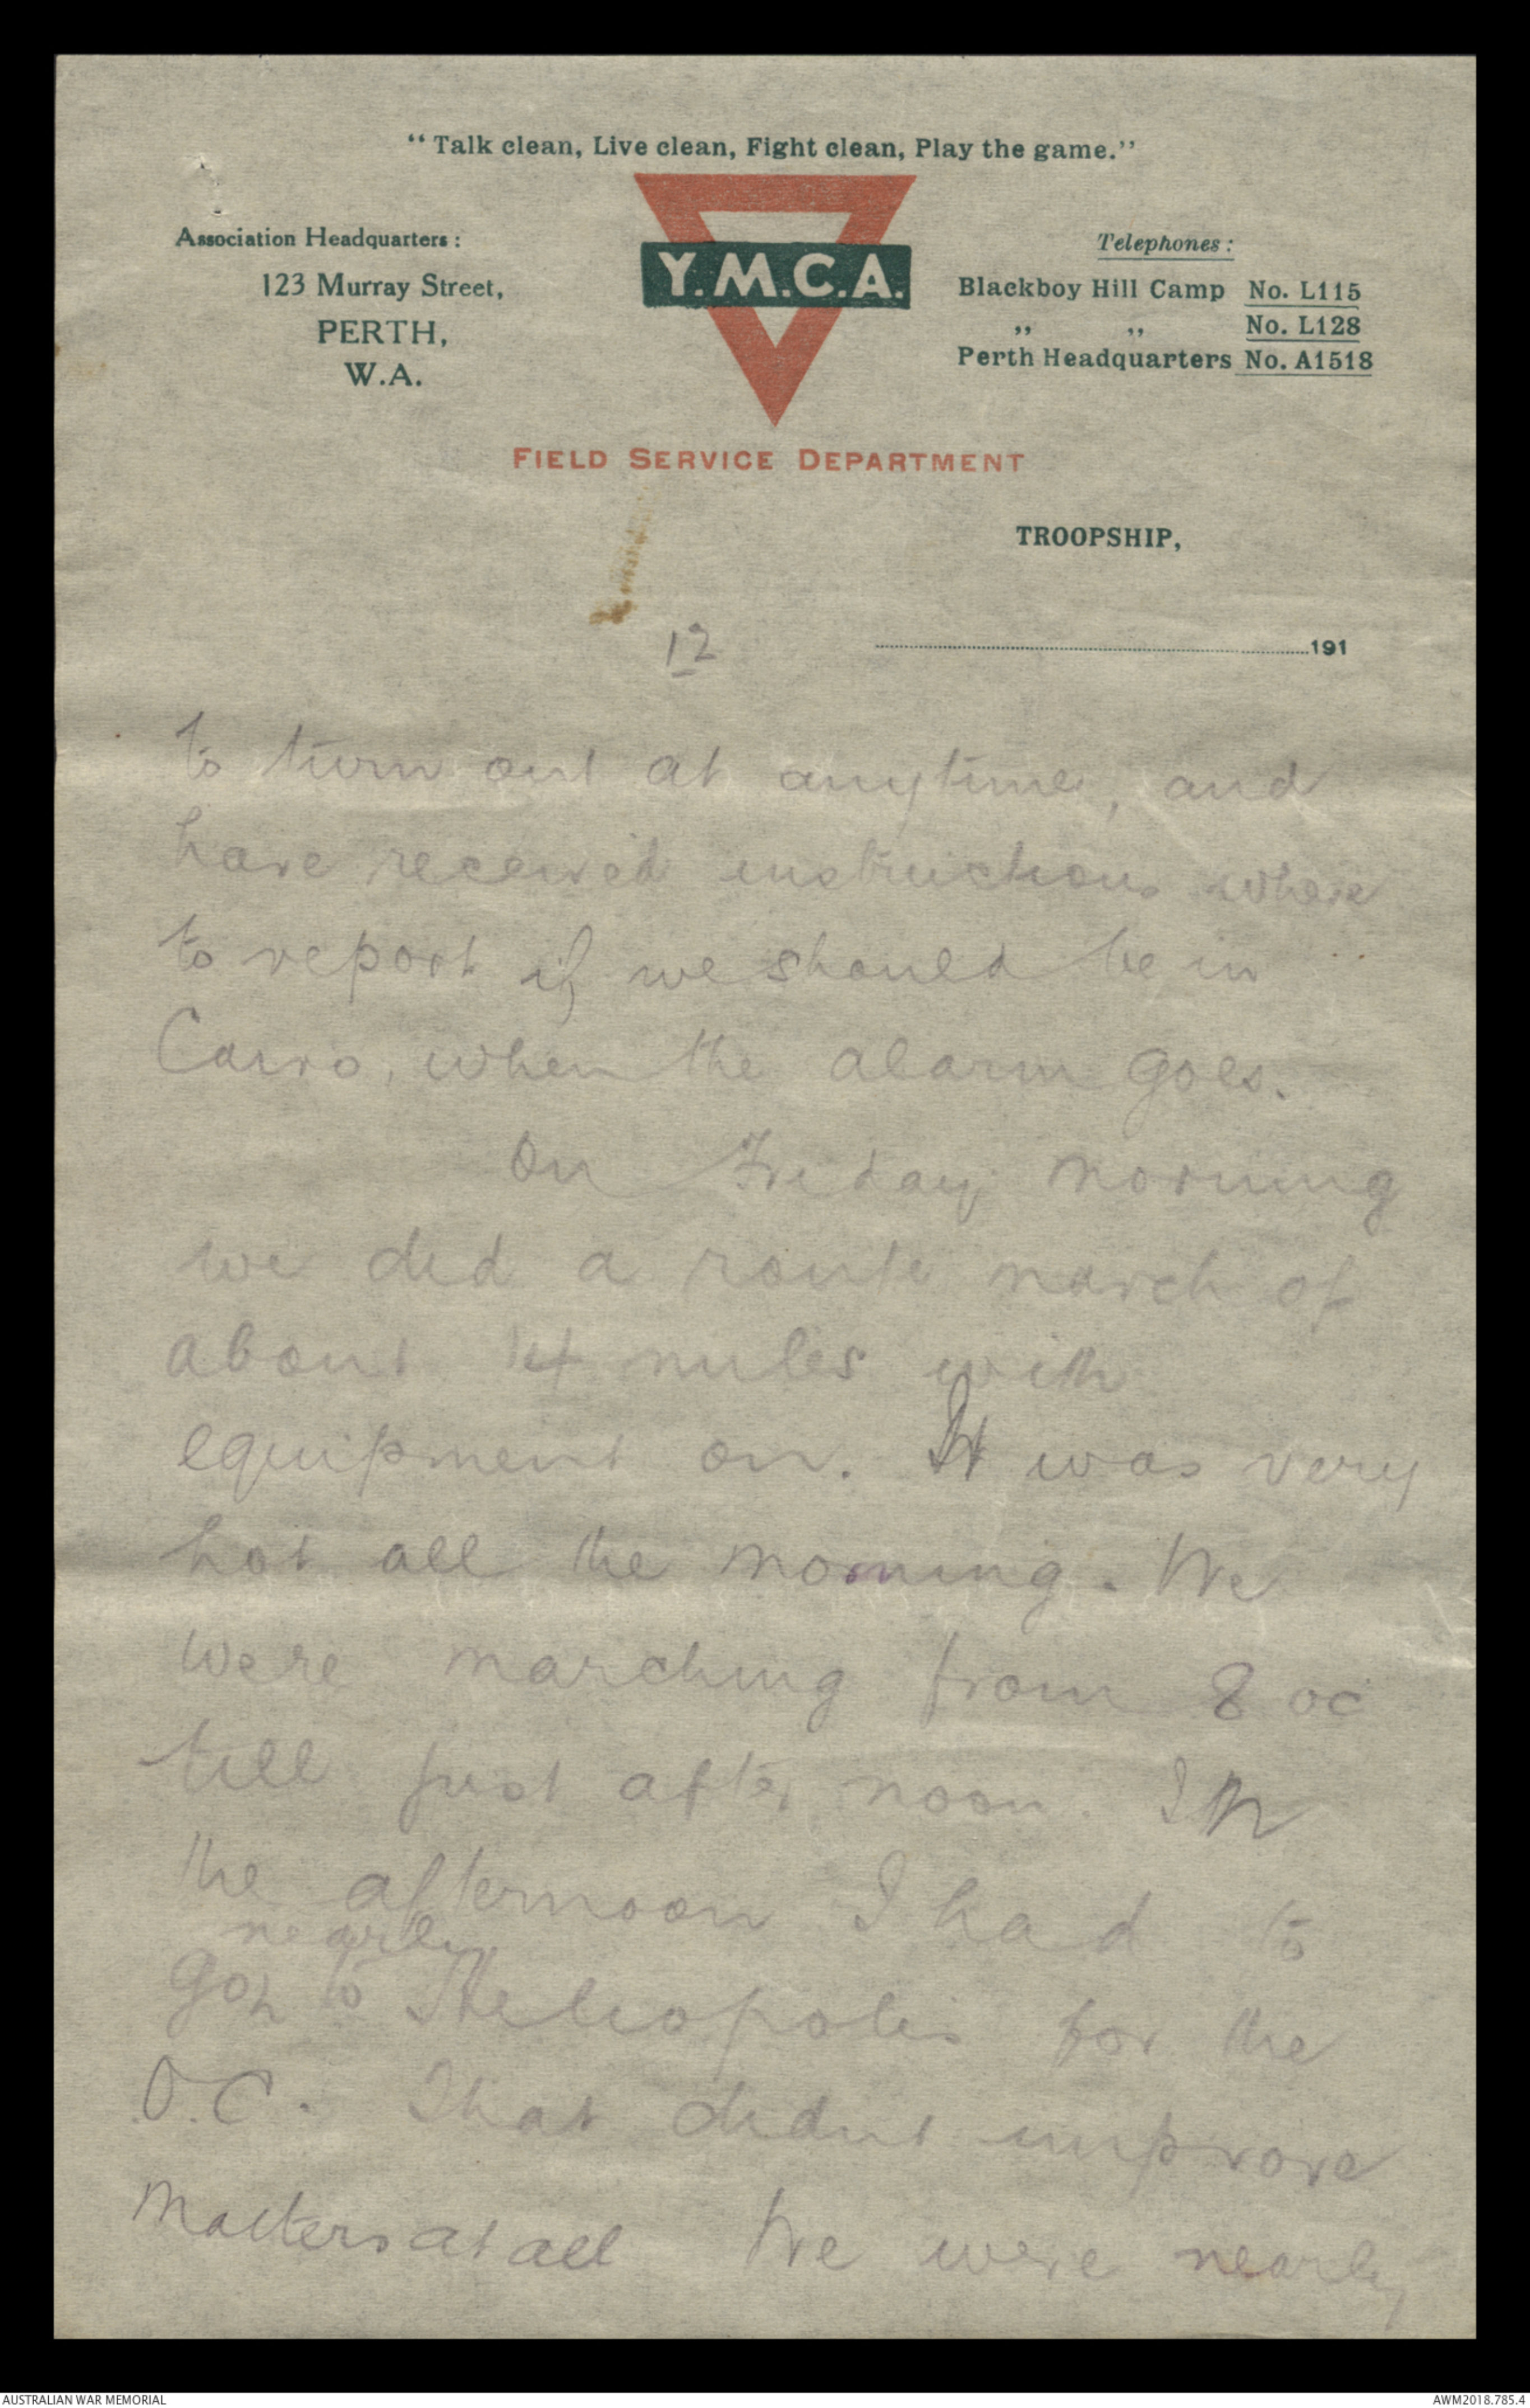 “Talk clean, Live clean, Fight clean, Play the game.”
Association Headquarters :
123 Murray Street,
PERTH,
W.A.
Y.M.C.A.
Telephones :
Blackboy Hill Camp No. L115
„ „ No. L128
Perth Headquarters No. A1518
FIELD SERVICE DEPARTMENT
TROOPSHIP,
12
191
to turn out at anytime, and
have received instructions where
to report if we should be in
Cairo, when the alarm goes.
On Friday morning
we did a route march of
about 14 miles with
equipment on. It was very
hot all the morning. We
were marching from 8 oc
till just after noon. In
the afternoon I had to
nearly
go to Heliopolis for the
O.C. That didnt improve
matters at all We were nearly
AUSTRALIAN WAR MEMORIAL
AWM2018.785.4